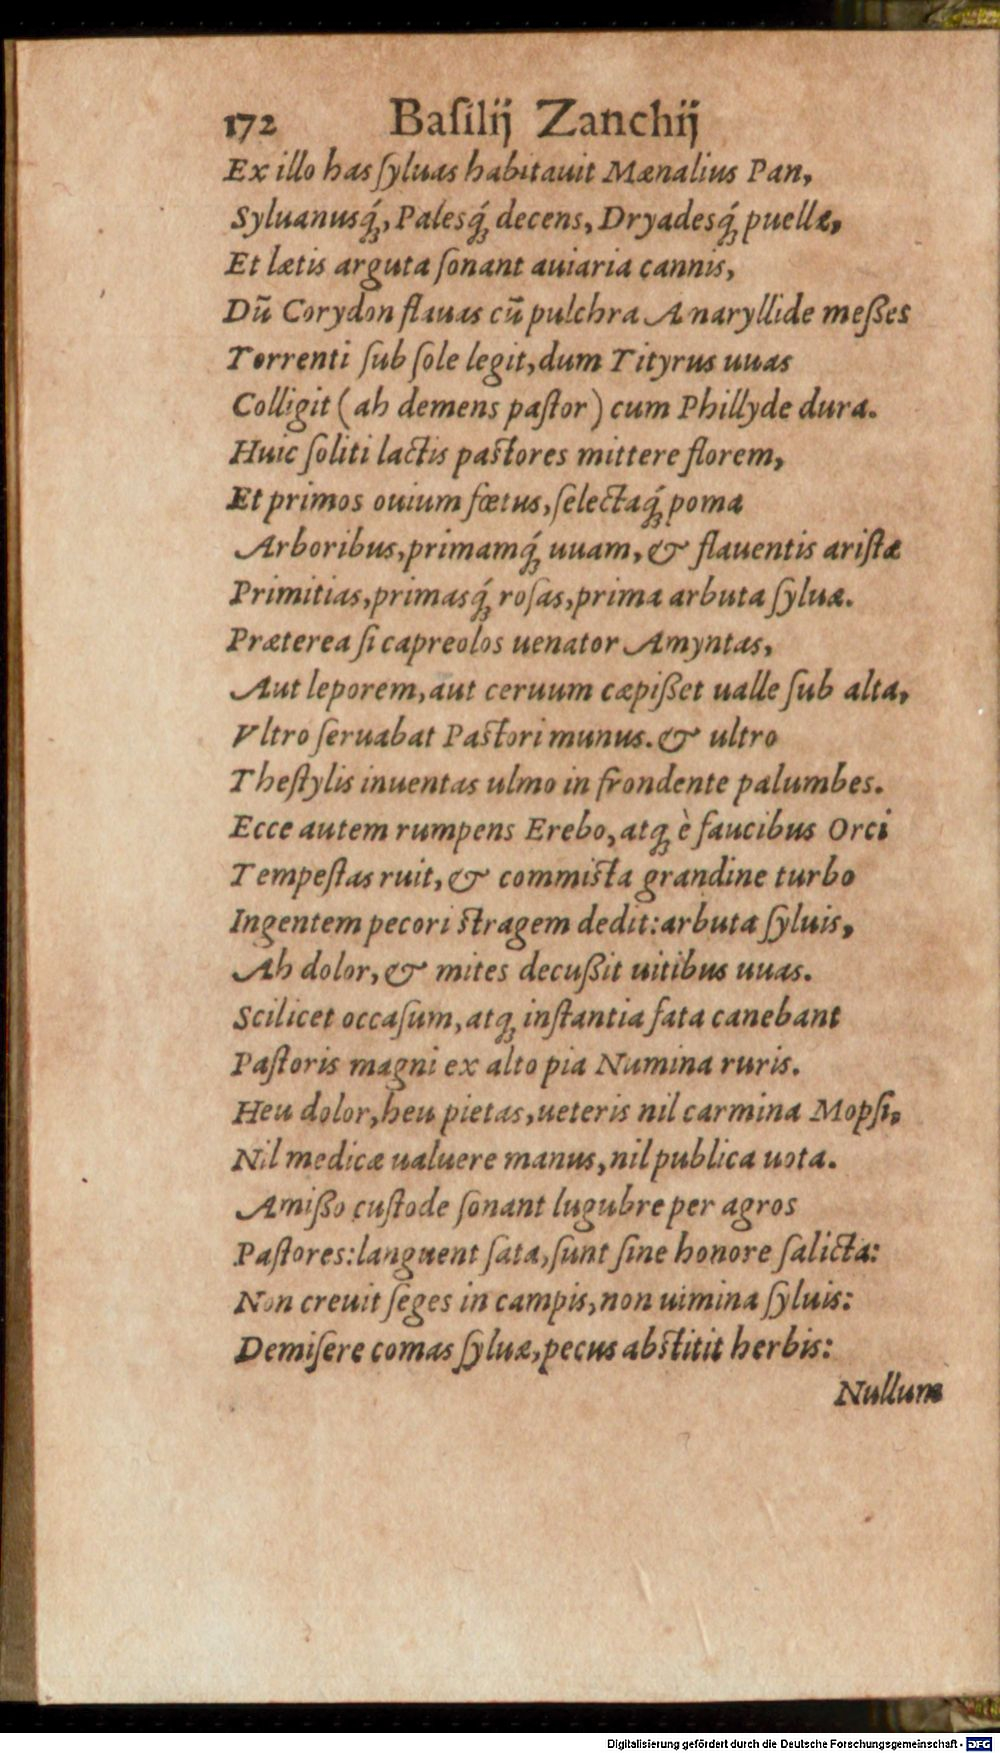 172 Baſilij Zanchij
Ex illo has ſyluas habitauit Mænalius Pan,
Syluanusq́ꝫ, Palesq́ꝫ decens, Dryadesq́ꝫ puellæ,
Et lætis arguta ſonant auiaria cannis,
Dū Corydon flauas cū pulchra Anaryllide meßes
Torrenti ſub ſole legit, dum Tityrus uuas
Colligit (ah demens paſtor) cum Phillyde dura.
Huic ſoliti lactis paſtores mittere florem,
Et primos ouium fœtus, ſelectaq́ꝫ poma
Arboribus, primamq́ꝫ uuam, & flauentis ariſtæ
Primitias, primasq́ꝫ roſas, prima arbuta ſyluæ.
Præterea ſi capreolos uenator Amyntas,
Aut leporem, aut ceruum cæpißet ualle ſub alta,
Vltro ſeruabat Paſtori munus. & ultro
Theſtylis inuentas ulmo in frondente palumbes.
Ecce autem rumpens Erebo, atqꝫ è faucibus Orci
Tempeſtas ruit, & commiſta grandine turbo
Ingentem pecori ſtragem dedit: arbuta ſyluis,
Ah dolor, & mites decußit uitibus uuas.
Scilicet occaſum, atqꝫ inſtantia fata canebant
Paſtoris magni ex alto pia Numina ruris.
Heu dolor, heu pietas, ueteris nil carmina Mopſi,
Nil medicæ ualuere manus, nil publica uota.
Amißo cuſtode ſonant lugubre per agros
Paſtores: languent ſata, ſunt ſine honore ſalicta:
Non creuit ſeges in campis, non uimina ſyluis:
Demiſere comas ſyluæ, pecus abſtitit herbis:
Nullum
Digitalisierung gefördert durch die Deutsche Forschungsgemeinschaft - DFG